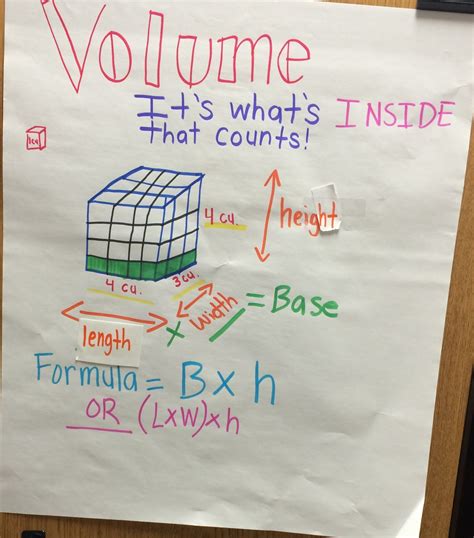 Volume
It's what's INSIDE
that counts!
1cu
4 cu.
height
3 cu.
4 cu.
width = Base
length x
Formula = B x h
OR (LxW)xh